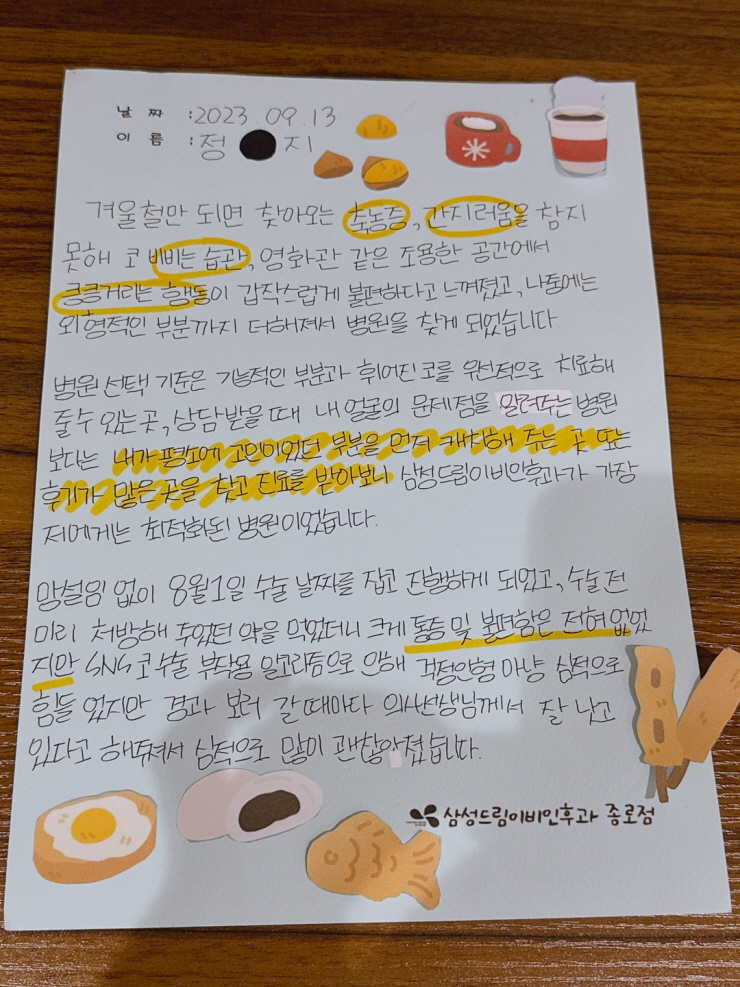 날 짜 : 2023. 09. 13
이 름 : 정 지
겨울철만 되면 찾아오는 축농증, 간지러움을 참지
못해 코 삐비는 습관, 영화관 같은 조용한 공간에서
킁킁거리는 행동이 갑작스럽게 불편하다고 느껴졌고, 나중에는
외형적인 부분까지 더해져서 병원을 찾게 되었습니다.
병원 선택 기준은 기능적인 부분과 휘어진 코를 우선적으로 치료해
줄 수 있는 곳, 상담 받을 때 내 얼굴의 문제점을 알려주는 병원
보다는 내가 평소에 고민이었던 부분을 먼저 캐치해 주는 곳 또는
후기가 많은 곳을 찾고 진료를 받아보니 삼성드림이비인후과가 가장
저에게는 최적화된 병원이었습니다.
망설임 없이 8월1일 수술 날짜를 잡고 진행하게 되었고, 수술 전
미리 처방해 주었던 약을 먹었더니 크게 통증 및 불편함은 전혀 없었
지만 SNS 코수술 부작용 알고리듬으로 인해 걱정인형 마냥 심적으로
힘들었지만 경과 보러 갈 때마다 의사선생님께서 잘 낫고
있다고 해주셔서 심적으로 많이 괜찮아졌습니다.
삼성드림이비인후과 종로점